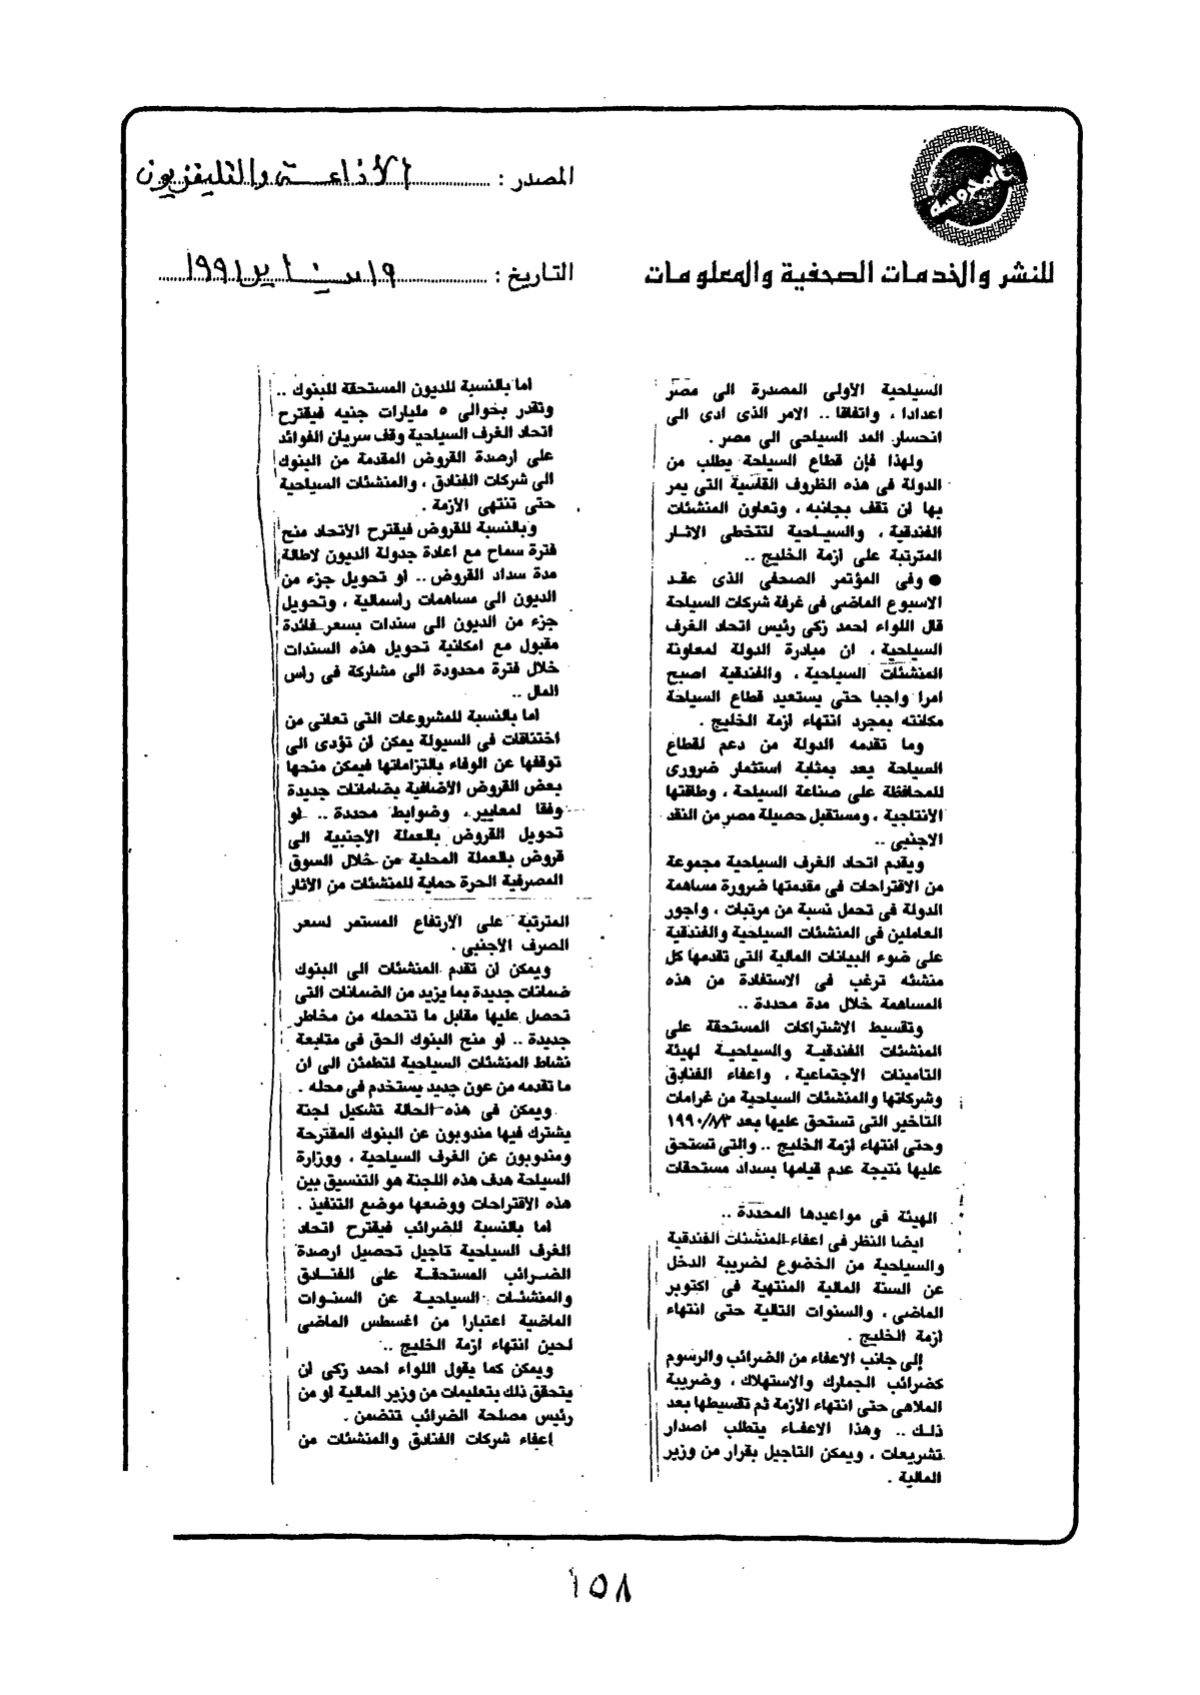 المصدر : الأذاعة والتليفزيون
المحروسة
للنشر والخدمات الصحفية والمعلومات
التاريخ : ١٩ يناير ١٩٩١
السياحية الأولى المصدرة الى مصر
اعدادا ، واتفاقا .. الامر الذى ادى الى
انحسار المد السياحى الى مصر .
ولهذا فإن قطاع السياحة يطلب من
الدولة فى هذه الظروف القاسية التى يمر
بها ان تقف بجانبه ، وتعاون المنشئات
الفندقية ، والسياحية لتتخطى الاثار
المترتبة على ازمة الخليج ..
● وفى المؤتمر الصحفى الذى عقد
الاسبوع الماضى فى غرفة شركات السياحة
قال اللواء احمد زكى رئيس اتحاد الغرف
السياحية ، ان مبادرة الدولة لمعاونة
المنشئات السياحية ، والفندقية اصبح
امرا واجبا حتى يستعيد قطاع السياحة
مكانته بمجرد انتهاء ازمة الخليج .
وما تقدمه الدولة من دعم لقطاع
السياحة يعد بمثابة استثمار ضرورى
للمحافظة على صناعة السياحة ، وطاقتها
الانتاجية ، ومستقبل حصيلة مصر من النقد
الاجنبى ..
ويقدم اتحاد الغرف السياحية مجموعة
من الاقتراحات فى مقدمتها ضرورة مساهمة
الدولة فى تحمل نسبة من مرتبات ، واجور
العاملين فى المنشئات السياحية والفندقية
على ضوء البيانات المالية التى تقدمها كل
منشئه ترغب فى الاستفادة من هذه
المساهمة خلال مدة محددة ..
وتقسيط الاشتراكات المستحقة على
المنشئات الفندقية والسياحية لهيئة
التامينات الاجتماعية ، واعفاء الفنادق
وشركاتها والمنشئات السياحية من غرامات
التاخير التى تستحق عليها بعد ١٩٩٠/٨/٣
وحتى انتهاء ازمة الخليج .. والتى تستحق
عليها نتيجة عدم قيامها بسداد مستحقات
الهيئة فى مواعيدها المحددة ..
ايضا النظر فى اعفاء المنشئات الفندقية
والسياحية من الخضوع لضريبة الدخل
عن السنة المالية المنتهية فى اكتوبر
الماضى ، والسنوات التالية حتى انتهاء
ازمة الخليج .
إلى جانب الاعفاء من الضرائب والرسوم
كضرائب الجمارك والاستهلاك ، وضريبة
الملاهى حتى انتهاء الأزمة ثم تقسيطها بعد
ذلك .. وهذا الاعفاء يتطلب اصدار
تشريعات ، ويمكن التاجيل بقرار من وزير
المالية .
اما بالنسبة للديون المستحقة للبنوك ..
وتقدر بحوالى ٥ مليارات جنيه فيقترح
اتحاد الغرف السياحية وقف سريان الفوائد
على ارصدة القروض المقدمة من البنوك
الى شركات الفنادق ، والمنشئات السياحية
حتى تنتهى الأزمة .
وبالنسبة للقروض فيقترح الاتحاد منح
فترة سماح مع اعادة جدولة الديون لاطالة
مدة سداد القروض .. او تحويل جزء من
الديون الى مساهمات راسمالية ، وتحويل
جزء من الديون الى سندات بسعر فائدة
مقبول مع امكانية تحويل هذه السندات
خلال فترة محدودة الى مشاركة فى راس
المال ..
اما بالنسبة للمشروعات التى تعانى من
اختناقات فى السيولة يمكن ان تؤدى الى
توقفها عن الوفاء بالتزاماتها فيمكن منحها
بعض القروض الاضافية بضامانات جديدة
وفقا لمعايير ، وضوابط محددة .. او
تحويل القروض بالعملة الاجنبية الى
قروض بالعملة المحلية من خلال السوق
المصرفية الحرة حماية للمنشئات من الآثار
المترتبة على الارتفاع المستمر لسعر
الصرف الاجنبى .
ويمكن ان تقدم المنشئات الى البنوك
ضمانات جديدة بما يزيد من الضمانات التى
تحصل عليها مقابل ما تتحمله من مخاطر
جديدة .. او منح البنوك الحق فى متابعة
نشاط المنشئات السياحية لتطمئن الى ان
ما تقدمه من عون جديد يستخدم فى محله .
ويمكن فى هذه الحالة تشكيل لجنة
يشترك فيها مندوبون عن البنوك المقترحة
ومندوبون عن الغرف السياحية ، ووزارة
السياحة هدف هذه اللجنة هو التنسيق بين
هذه الاقتراحات ووضعها موضع التنفيذ .
اما بالنسبة للضرائب فيقترح اتحاد
الغرف السياحية تاجيل تحصيل ارصدة
الضرائب المستحقة على الفنادق
والمنشئات السياحية عن السنوات
الماضية اعتبارا من اغسطس الماضى
لحين انتهاء ازمة الخليج ..
ويمكن كما يقول اللواء احمد زكى ان
يتحقق ذلك بتعليمات من وزير المالية او من
رئيس مصلحة الضرائب تتضمن .
إعفاء شركات الفنادق والمنشئات من
١٥٨